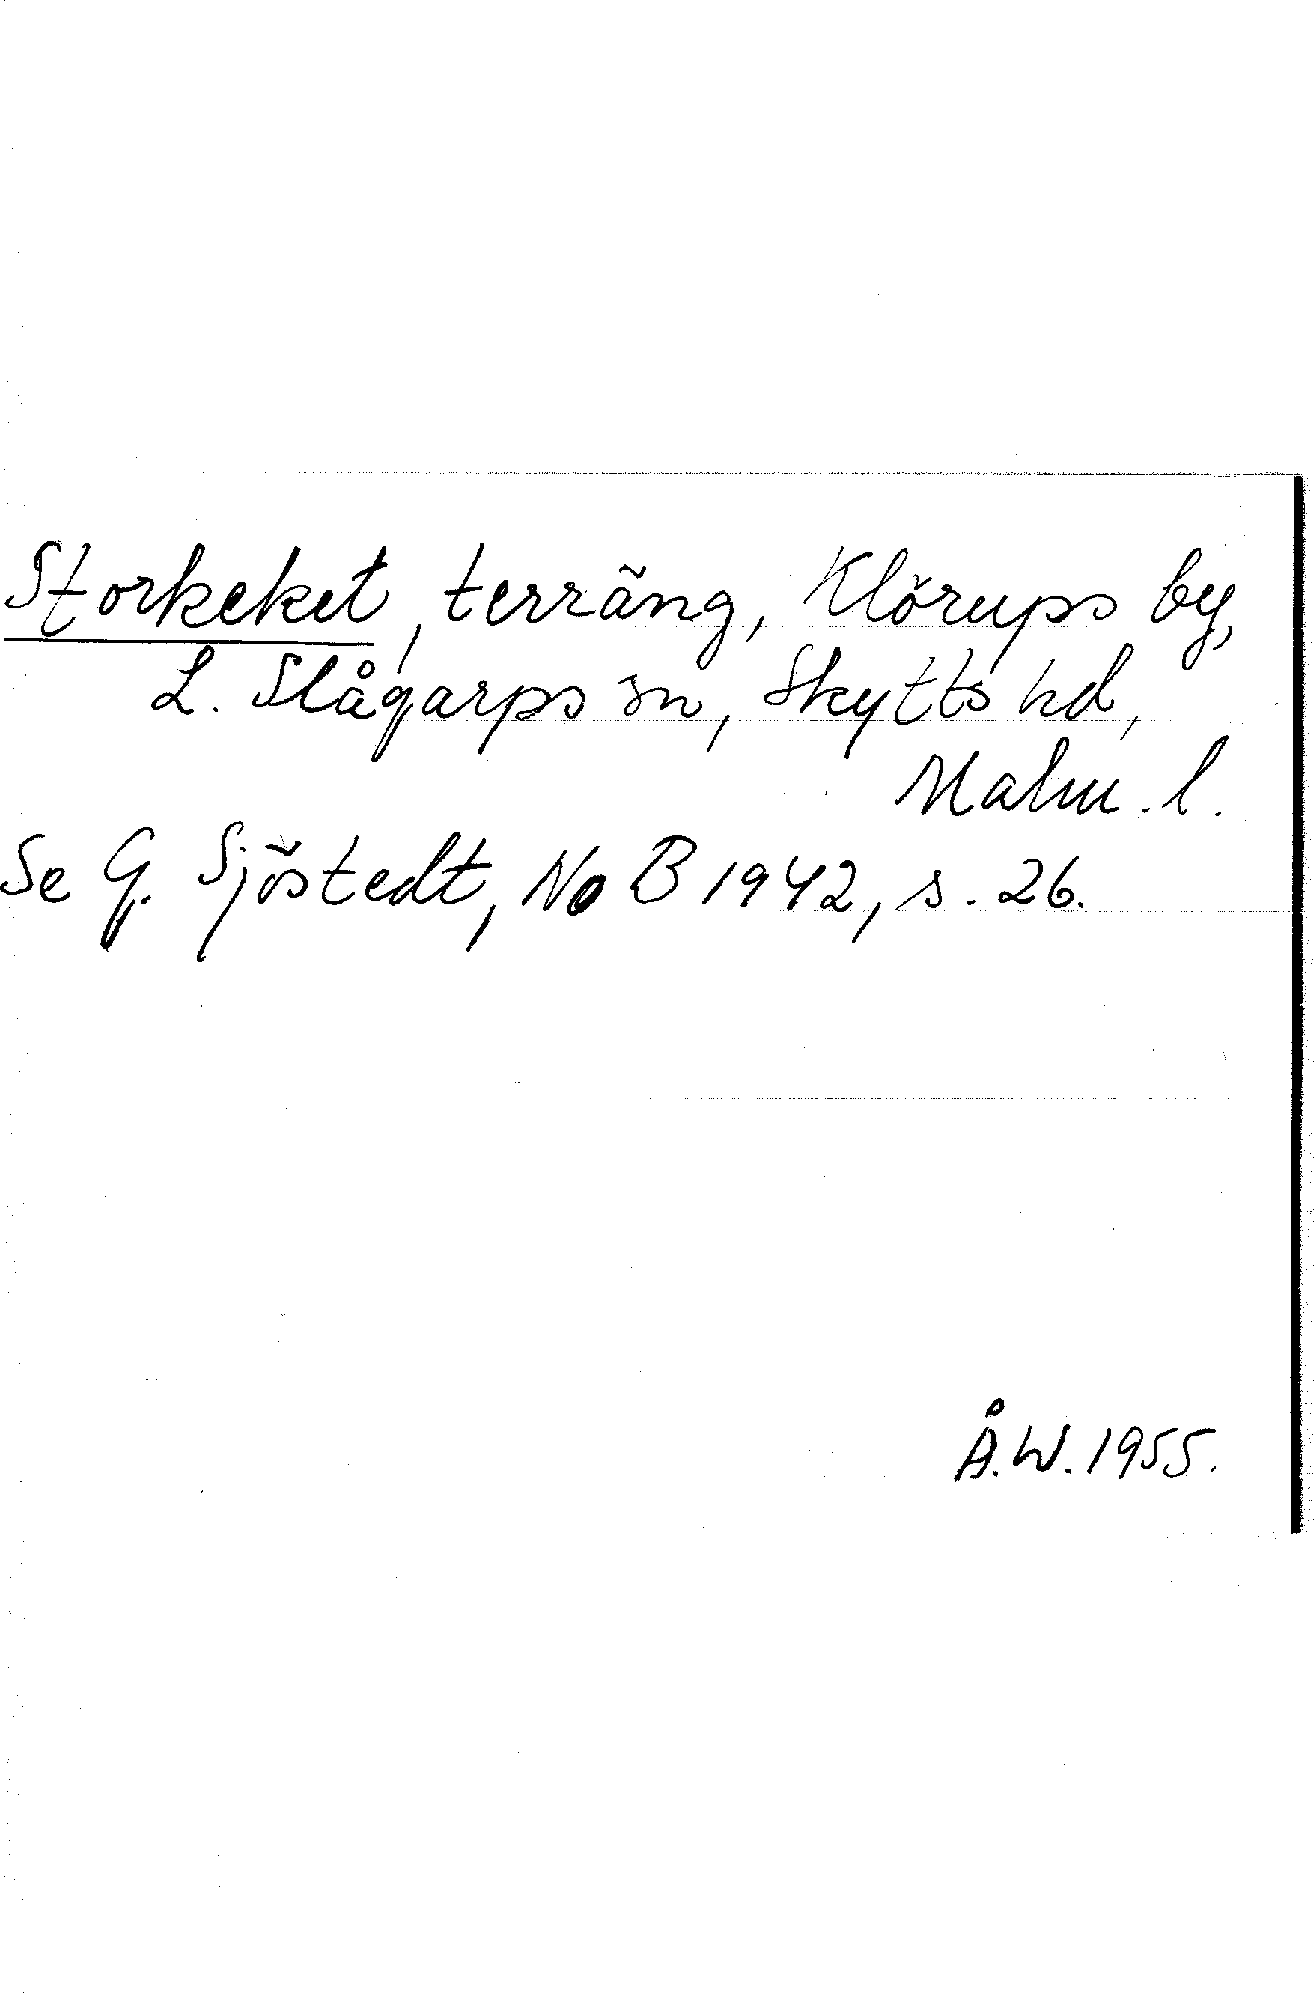 Storkeket, terräng, Klörups by,
L. Slågarps sn, Skytts hd,
Malm. l.
Se G. Sjöstedt, No B 1942, s. 26.
Å.W. 1955.